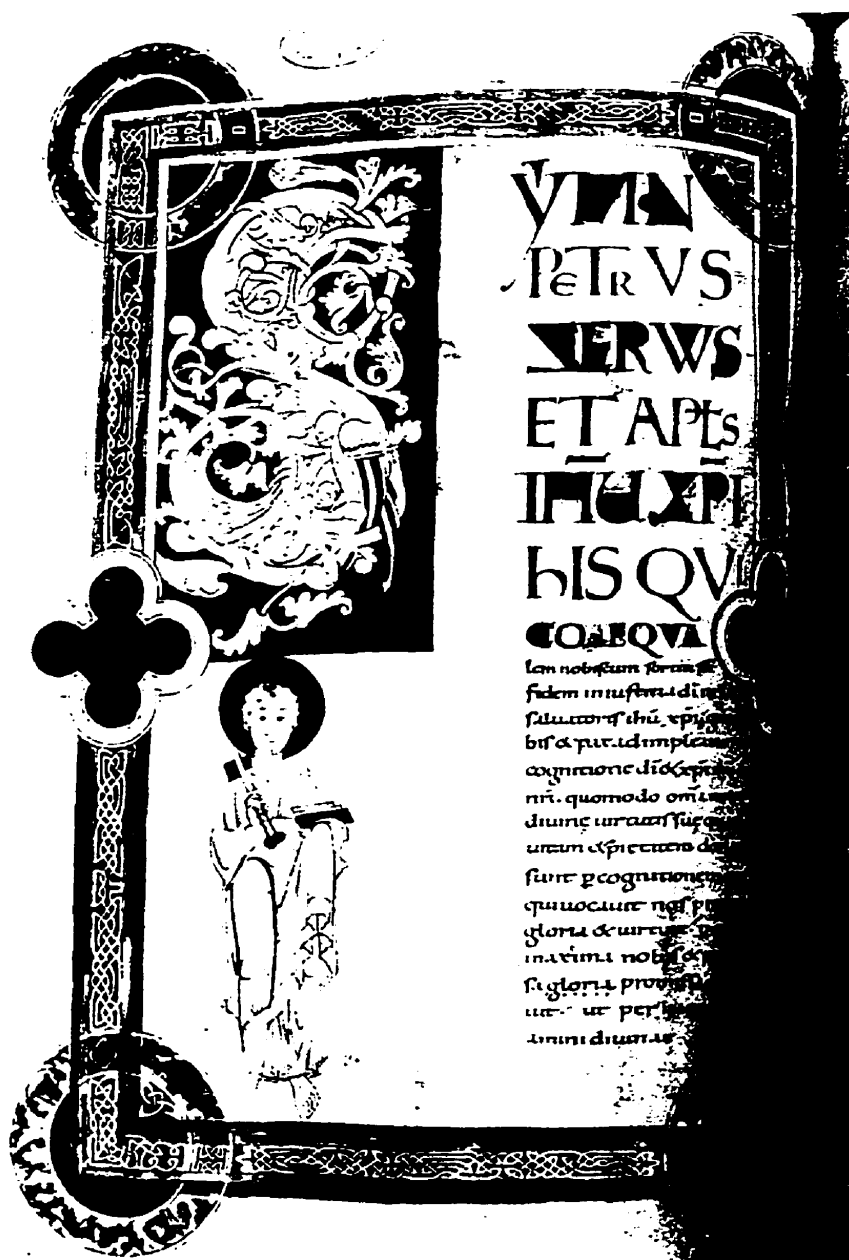 SYMON
PETRVS
SERVVS
ET APLS
IHU XPI
hIS QVI
COAEQVA
lem nobiscum sortiti
fidem in iustitia di
saluatoris ihu xpi
bis & pax adimple
cognitione di & xpi
nri. quomodo omnia
diuinę uirtutis suę
uitam & pietatem
sunt p cognitionem
qui uocauit nos
gloria & uirtute
maxima nobis &
sa gloria
uit. ut per
amini diuinae